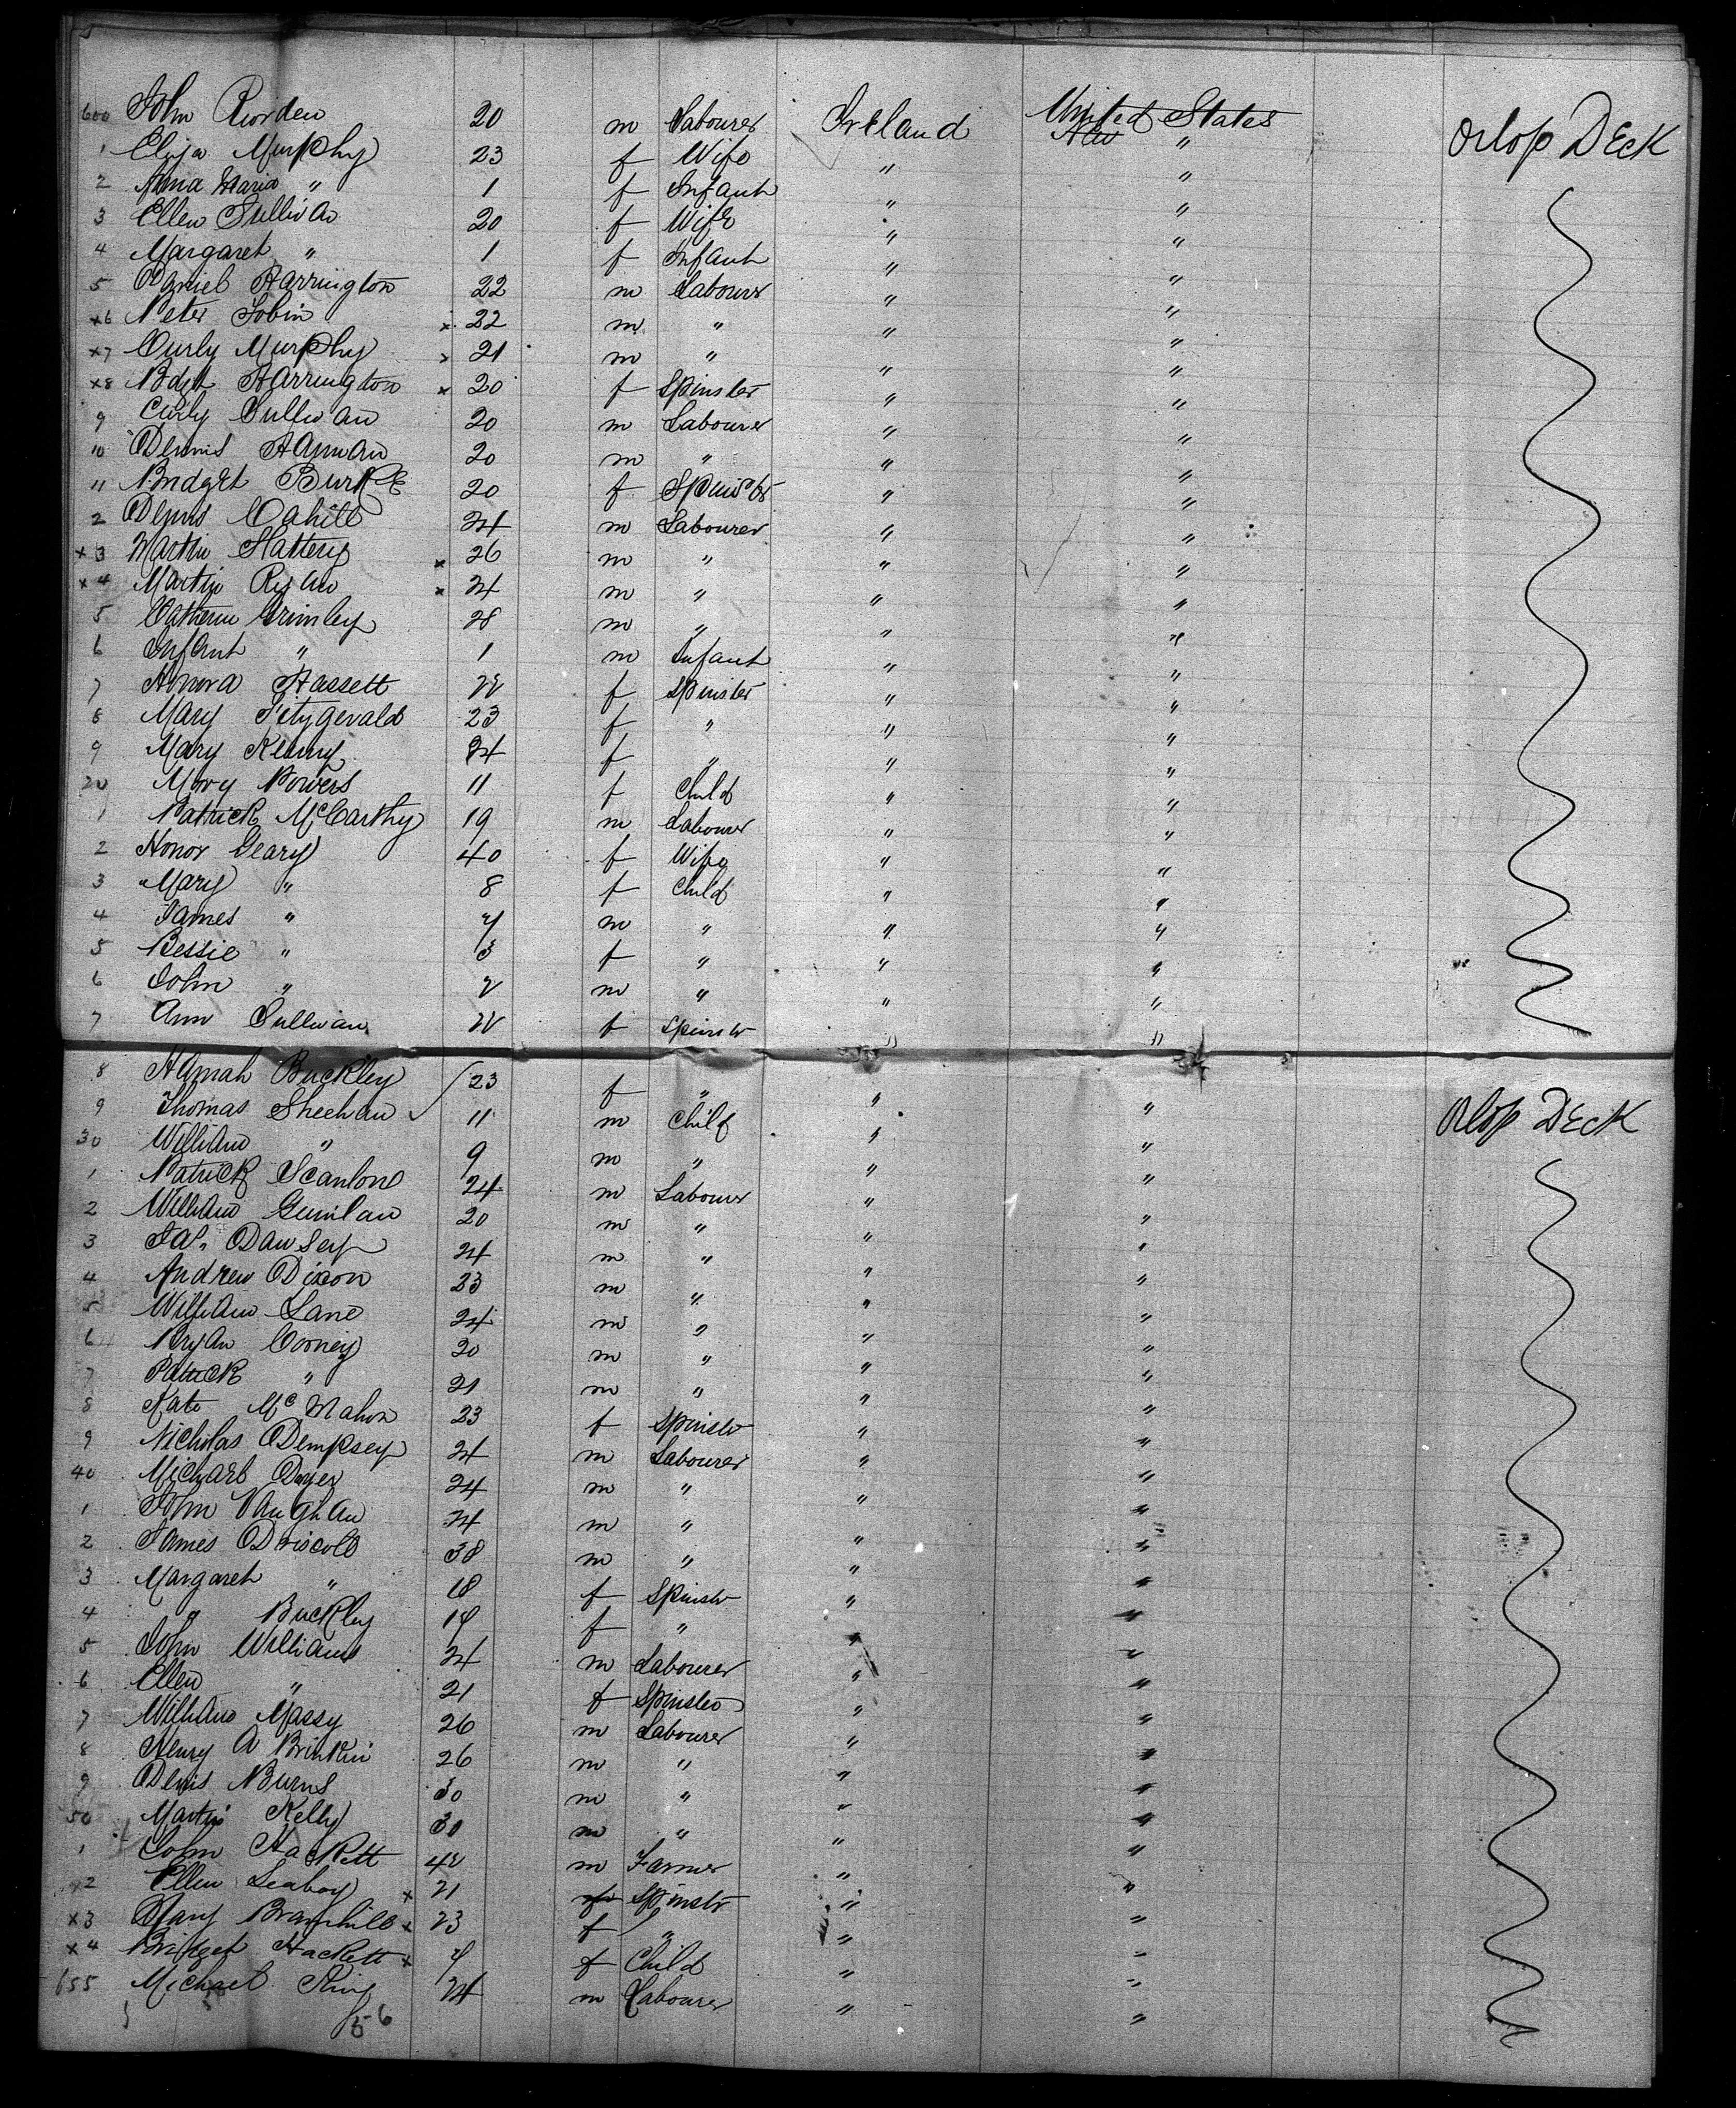 600 John Riorden 20 m Labourer Ireland United States Orlop Deck
1 Eliza Murphy 23 f Wife " "
2 Anna Maria " 1 f Infant " "
3 Ellen Sullivan 20 f Wife " "
4 Margaret " 1 f Infant " "
5 Daniel Harrington 22 m Labourer " "
x6 Peter Tobin x 22 m " " "
x7 Curly Murphy x 21 m " " "
x8 Bdgt Harrington x 20 f Spinster " "
9 Curly Sullivan 20 m Labourer " "
10 Dennis 20 m " " "
11 Bridget Burke 20 f Spinster " "
2 Denis Cahill 24 m Labourer " "
x3 Martin Slattery x 26 m " " "
x4 Martin Ryan x 24 m " " "
5 Catherine Grimley 28 m " " "
6 Infant " 1 m Infant " "
7 Honora Hassett 22 f Spinster " "
8 Mary Fitzgerald 23 f " " "
9 Mary Kenny 24 f " " "
20 Mary Powers 11 f Child " "
1 Patrick McCarthy 19 m Labourer " "
2 Honor Geary 40 f Wife " "
3 Mary " 8 f Child " "
4 James " m " " "
5 Bessie " 3 f " " "
6 John " 2 m " " "
7 Ann Sullivan 22 f Spinstr " "
8 Hannah Buckley 23 f " " " Orlop Deck
9 Thomas Sheehan 11 m Child " "
30 William " 9 m " " "
1 Patrick Scanlone 24 m Labourer " "
2 William 20 m " " "
3 Jas. Dawsey 24 m " " "
4 Andrew Dixon 23 m " " "
5 William Lane 24 m " " "
6 Bryan Cooney 20 m " " "
7 Patrick " 21 m " " "
8 Kate McMahon 23 f Spinstr " "
9 Nicholas Dempsey 24 m Labourer " "
40 Michael Dwyer 24 m " " "
1 John Vaughan 24 m " " "
2 James Driscoll 38 m " " "
3 Margaret " 18 f Spinstr " "
4 " Buckley f " " "
5 John Williams 24 m Labourer " "
6 Ellen " 21 f Spinster " "
7 William Massy 26 m Labourer " "
8 Henry A 26 m " " "
9 Denis Burns 30 m " " "
50 Martin Kelly 30 m " " "
1 John Hackett 42 m Farmer " "
x2 Ellen Leahy x 21 f Spinstr " "
x3 Mary Bramhill x 23 f " " "
x4 Bridget Hackett x f Child " "
655 Michael King 24 m Labourer " "
56